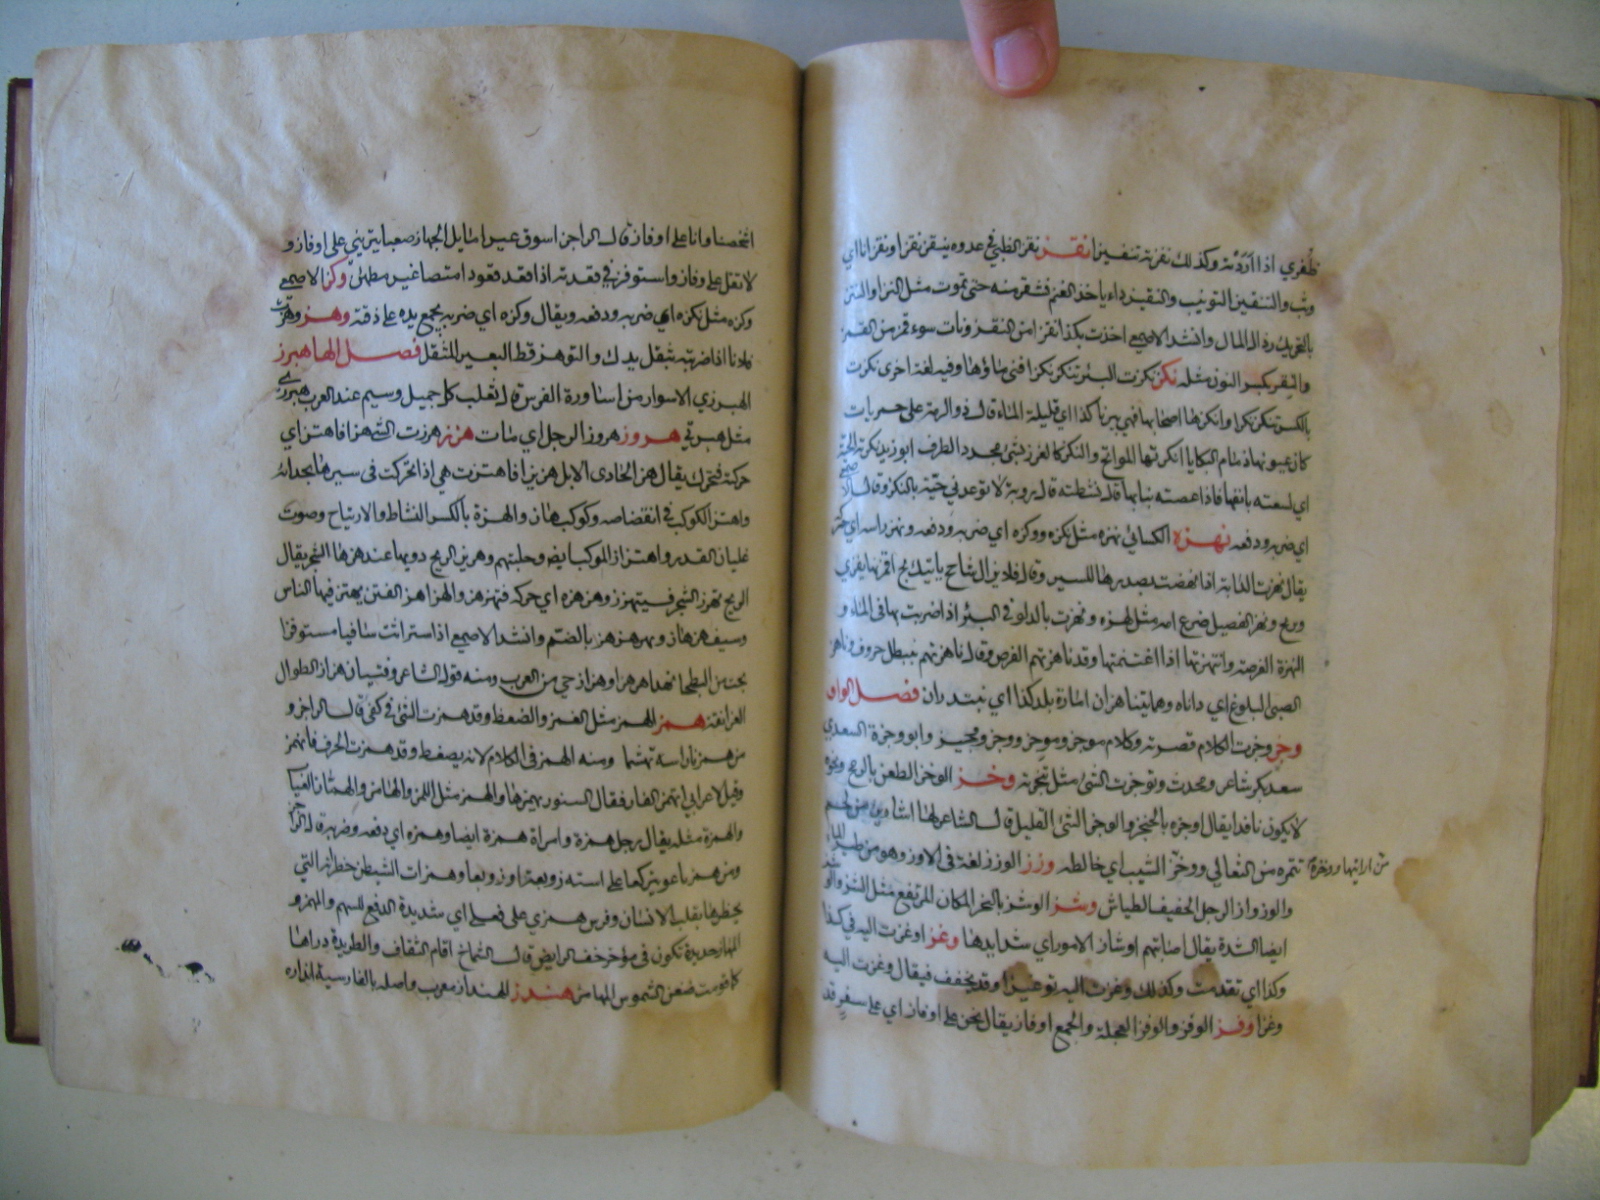 ظفري اذا اردته وكذلك نفزته تنفيزا نقز نقز الظبي في عدوه ينقز نقزا ونقزانا اي
وثب والتنقيز التوثيب والنقيز داء ياخذ الغنم فتنقز منه حتى تموت مثل النزا والنقز
بالتحريك رذال المال وانشد الاصمعي اخذت بكذا نقزا من النقز وناب سوء قمزا من القمز
والنقز بكسر النون مثله نكز نكزت البئر تنكز نكزا فنى ماؤها وفيه لغة اخرى نكزت
بالكسر تنكز نكزا وانكزها اصحابها فهي بئر ناكز اي قليلة الماء قال ذو الرمة على حميريات
كان عيونها ذمام الركايا انكزتها المواتح والنكز كالغرز بشئ محدد الطرف ابو زيد نكزته الحية
اي لسعته بانفها فاذا عضته بنابها قيل نشطته قال رؤبة لا توعدني حية بالنكز وقال الاصمعي
اي ضربه ودفعه نهزه الكسائي نهزه مثل نكزه ووكزه اي ضربه ودفعه ونهز راسه اي حركه
يقال نهزت الدابة اذا نهضت بصدرها للسير وقال فلا يزال شاحج ياتيك بج اقمر نهاز ينزي
وفرتج ونهز الفصيل ضرع امه مثل لهزه ونهزت بالدلو في البئر اذا ضربت بها في الماء و
النهزة الفرصة وانتهزتها اذا اغتنمتها وقد ناهزتهم الفرص وقال ناهزتهم بنيطل جروف وناهز
الصبي البلوغ اي داناه وهما يتناهزان امارة بلد كذا اي يبتدران فصل الواو
وجز وجزت الكلام قصرته وكلام موجز وموجز ووجز ووجيز وابو وجزة السعدي
سعد بكر شاعر ومحدث وتوجزت الشئ مثل تنجزته وخز الوخز الطعن بالرمح ونحوه
لا يكون نافذا يقال وخزه بالخنجر والوخز الشئ القليل قال الشاعر لها اشارير من لحم
تتمره من الثعالي ووخز من ارانيها ووخزه الشيب اي خالطه وزز الوزز لغة في الاوز وهو من طير الماء
والوزواز الرجل الخفيف الطياش وشز الوشز بالتحريك المكان المرتفع مثل النشز والوشز
ايضا الشدة يقال اصابتهم اوشاز الامور اي شدايدها وعز اوعزت اليه في كذا
وكذا اي تقدمت وكذلك وعزت اليه توعيزا وقد يخفف فيقال وعزت اليه
وعزا وفز الوفز والوفز العجلة والجمع اوفاز يقال نحن على اوفاز اي على سفر قد
اشخصنا وانا على اوفاز قال الراجز اسوق عيرا مايل الجهاز صعبا ينزيني على اوفاز و
لا تقل على وفاز واستوفز في قعدته اذا قعد قعودا منتصبا غير مطمئن وكز الاصمعي
وكزه مثل نكزه اي ضربه ودفعه ويقال وكزه اي ضربه بجمع يده على ذقنه وهز وهزت
فلانا اذا ضربته بثقل يدك والتوهز وطء البعير المثقل فصل الها هبرز
الهبرزي الاسوار من اساورة الفرس قال ثعلب كل جميل وسيم عند العرب هبرزي
مثل هبرقي هروز هروز الرجل اي مات هزز هززت الشئ هزا فاهتز اي
حركته فتحرك يقال هز الحادي الابل هزيزا فاهتزت هي اذا تحركت في سيرها بحدائه
واهتز الكوكب في انقضاضه وكوكب هاز والهزة بالكسر النشاط والارتياح وصوت
غليان القدر واهتزاز الموكب ايضا وجلبتهم وهزيز الريح دويها عند هزها الشجر يقال
الريح تهزز الشجر فيتهزز وهزهزه اي حركه فتهزهز والهزاهز الفتن يهتز فيها الناس
وسيف هزهاز ونهر هزهز بالضم وانشد الاصمعي اذا استراثت ساقيا مستوفزا
بجت من البطحا نهرا هزهزا وهزاز حي من العرب ومنه قول الشاعر وفتيان هزان الطوال
الغرانقة همز الهمز مثل الغمز والضغط وقد همزت الشئ في كفي قال الراجز و
من همزنا راسه تهشما ومنه الهمز في الكلام لانه يضغط وقد همزت الحرف فانهمز
وقيل لاعرابي اتهمز الفار فقال السنور يهمزها والهمز مثل اللمز والهامز والهماز العياب
والهمزة مثله يقال رجل همزة وامراة همزة ايضا وهمزه اي دفعه وضربه قال الراجز
ومن همزنا عزه تبركعا على استه زوبعة او زوبعا وهمزات الشيطان خطراته التي
يخطرها بقلب الانسان وقوس همزى على فعلى اي شديدة الدفع للسهم والمهمز و
المهماز حديدة تكون في مؤخر خف الرايض قال الشماخ اقام الثقاف والطريدة دراها
كما قومت ضغن الشموس المهامز هندز الهنداز معرب واصله بالفارسية اندازه